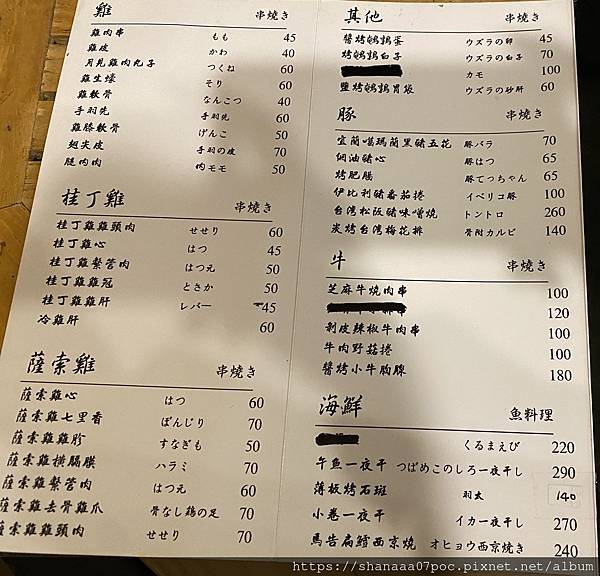 雞 串燒き
雞肉串 もも 45
雞皮 かわ 40
月見雞肉丸子 つくね 60
雞生蠔 そり 60
雞軟骨 なんこつ 40
手羽先 手羽先 60
雞膝軟骨 げんこ 50
翅尖皮 手羽の皮 70
腿肉肉 肉モモ 50
桂丁雞 串燒き
桂丁雞雞頸肉 せせり 60
桂丁雞心 はつ 45
桂丁雞繫管肉 はつ元 50
桂丁雞雞冠 とさか 50
桂丁雞雞肝 レバー 45
冷雞肝 60
薩索雞 串燒き
薩索雞心 はつ 60
薩索雞七里香 ぼんじり 70
薩索雞雞胗 すなぎも 50
薩索雞橫膈膜 ハラミ 70
薩索雞繫管肉 はつ元 60
薩索雞去骨雞爪 骨なし鶏の足 70
薩索雞雞頸肉 せせり 70
其他 串燒き
醬烤鵪鶉蛋 ウズラの卵 45
烤鵪鶉白子 ウズラの白子 70
カモ 100
鹽烤鵪鶉胃袋 ウズラの砂肝 60
豚 串燒き
宜蘭噶瑪蘭黑豬五花 豚バラ 70
焗油豬心 豚はつ 65
烤肥腸 豚てっちゃん 65
伊比利豬番茄捲 イベリコ豚 100
台湾松阪豬味噌燒 トントロ 260
炭烤台湾梅花排 骨附カルビ 140
牛 串燒き
芝麻牛燒肉串 100
120
剝皮辣椒牛肉串 100
牛肉野菇捲 100
醬烤小牛胸腺 180
海鮮 魚料理
くるまえび 220
午魚一夜干 つばめこのしろ一夜干し 290
薄板烤石斑 羽太 140
小卷一夜干 イカ一夜干し 270
馬告扁鱈西京燒 オヒョウ西京燒き 240
https://shanaaa07poc.pixnet.net/album